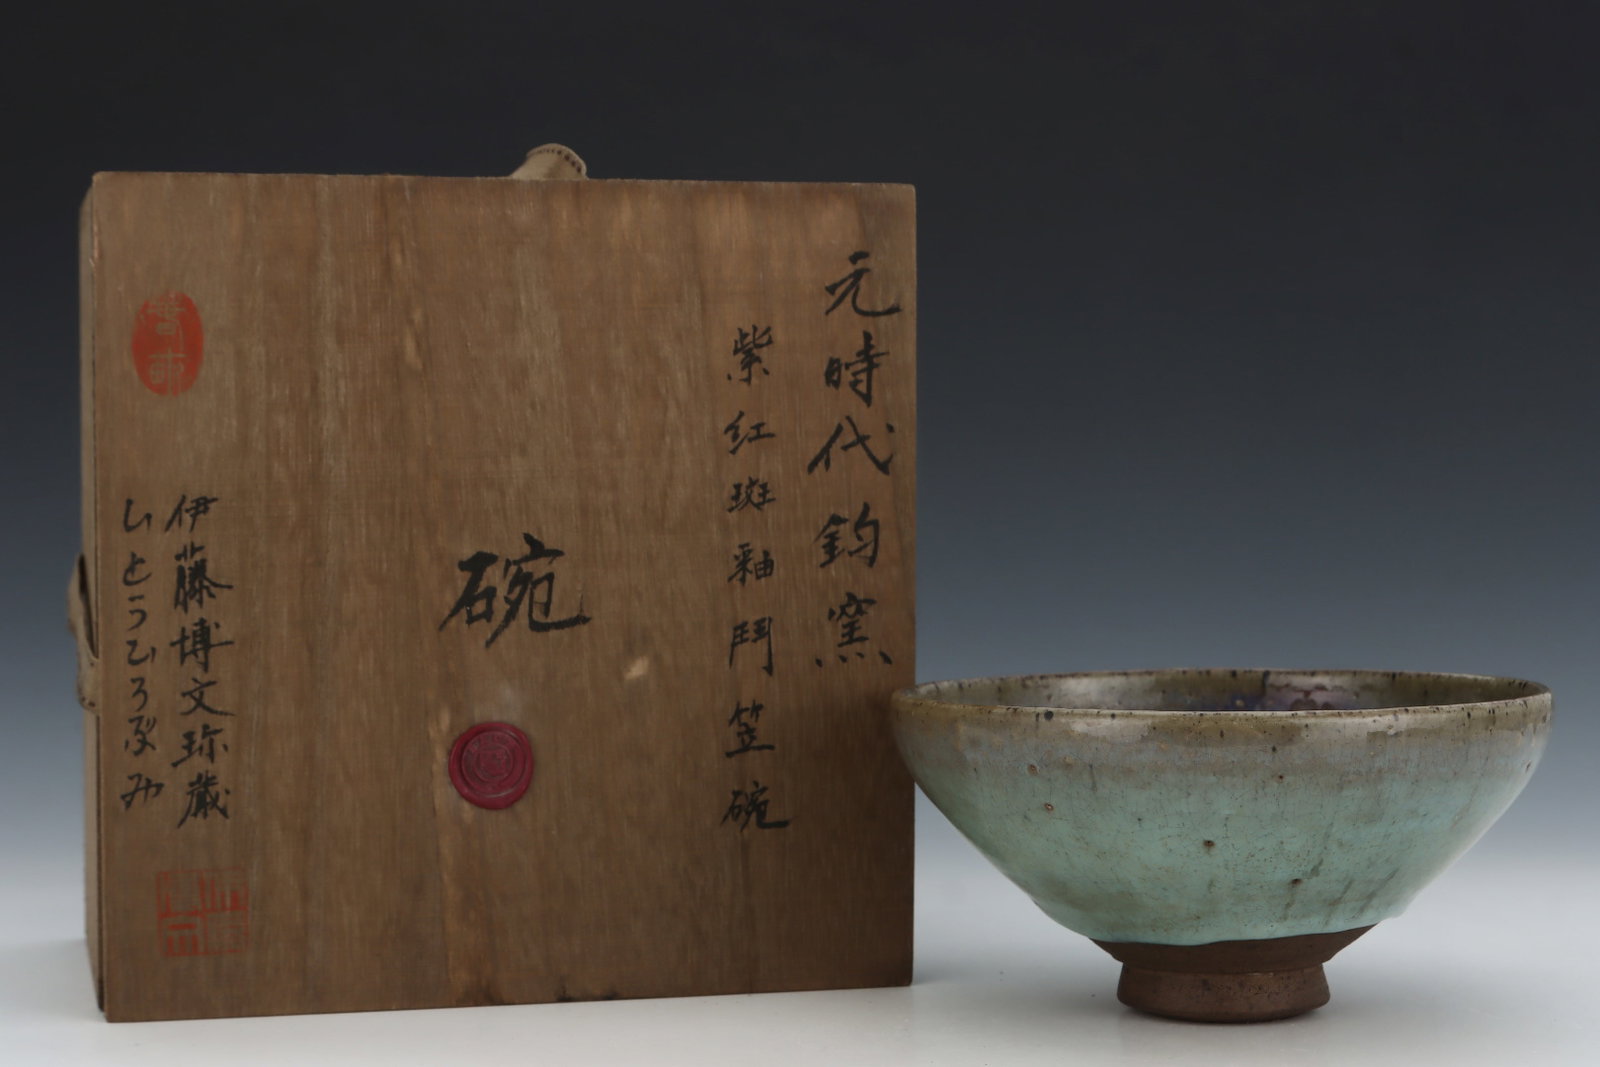 元時代鈞窯
紫红斑釉鬥笠碗
碗
伊藤博文珎蔵
いとうひろぶみ